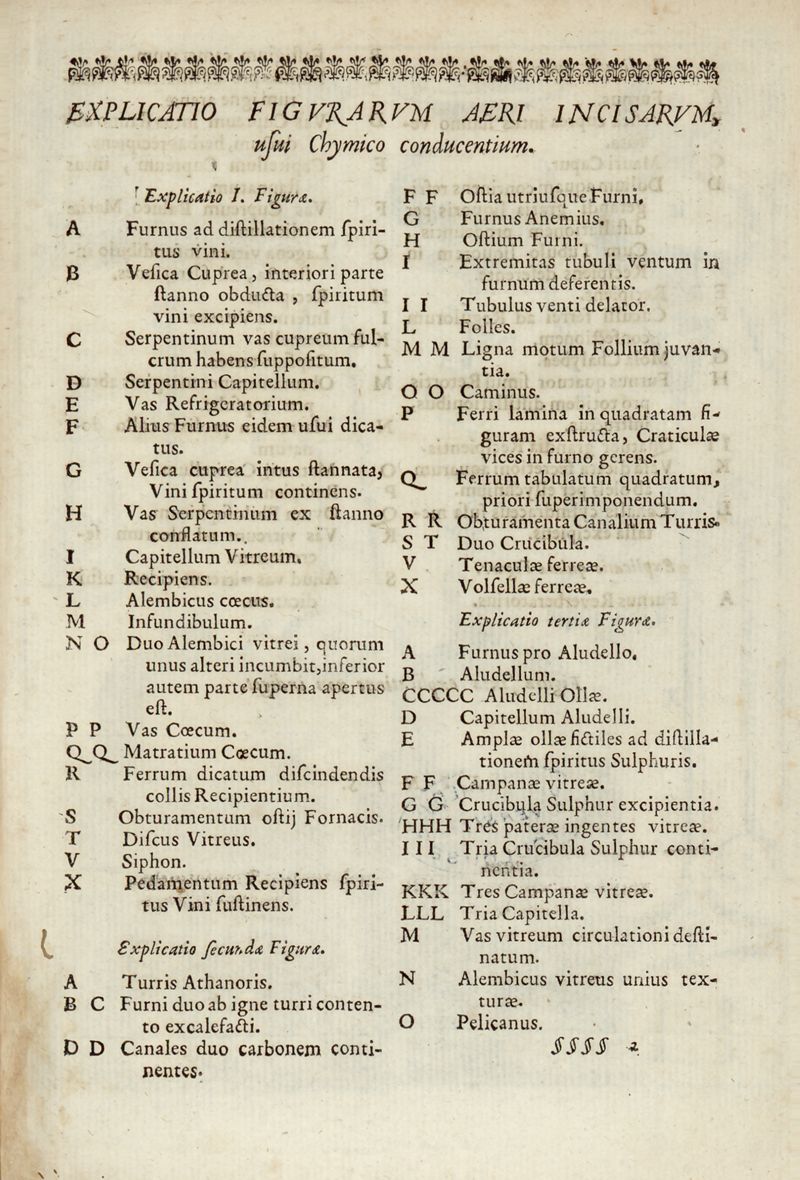 EXPLICATIO FIGVRARVM AERI INCISARVM,
uſui Chymico conducentium.
Explicatio I. Figuræ.
A Furnus ad diſtillationem ſpiri-
tus vini.
B Veſica Cuprea, interiori parte
ſtanno obducta, ſpiritum
vini excipiens.
C Serpentinum vas cupreum ful-
crum habens ſuppoſitum.
D Serpentini Capitellum.
E Vas Refrigeratorium.
F Alius Furnus eidem uſui dica-
tus.
G Veſica cuprea intus ſtannata,
Vini ſpiritum continens.
H Vas Serpentinum ex ſtanno
conflatum.
I Capitellum Vitreum.
K Recipiens.
L Alembicus cœcus.
M Infundibulum.
N O Duo Alembici vitrei, quorum
unus alteri incumbit, inferior
autem parte ſuperna apertus
eſt.
P P Vas Cœcum.
Q Q Matratium Cœcum.
R Ferrum dicatum diſcindendis
collis Recipientium.
S Obturamentum oſtij Fornacis.
T Diſcus Vitreus.
V Siphon.
X Pedamentum Recipiens ſpiri-
tus Vini ſuſtinens.
Explicatio ſecundæ Figuræ.
A Turris Athanoris.
B C Furni duo ab igne turri conten-
to excalefacti.
D D Canales duo carbonem conti-
nentes.
F F Oſtia utriuſque Furni.
G Furnus Anemius.
H Oſtium Furni.
I Extremitas tubuli ventum in
furnum deferentis.
I I Tubulus venti delator.
L Folles.
M M Ligna motum Follium juvan-
tia.
O O Caminus.
P Ferri lamina in quadratam fi-
guram exſtructa, Craticulæ
vices in furno gerens.
Q Ferrum tabulatum quadratum,
priori ſuperimponendum.
R R Obturamenta Canalium Turris.
S T Duo Crucibula.
V Tenaculæ ferreæ.
X Volſellæ ferreæ.
Explicatio tertiæ Figuræ.
A Furnus pro Aludello.
B Aludellum.
CCCCC Aludelli Ollæ.
D Capitellum Aludelli.
E Amplæ ollæ fictiles ad diſtilla-
tionem ſpiritus Sulphuris.
F F Campanæ vitreæ.
G G Crucibula Sulphur excipientia.
HHH Tres pateræ ingentes vitreæ.
I I I Tria Crucibula Sulphur conti-
nentia.
KKK Tres Campanæ vitreæ.
LLL Tria Capitella.
M Vas vitreum circulationi deſti-
natum.
N Alembicus vitreus unius tex-
turæ.
O Pelicanus.
SSSS 2